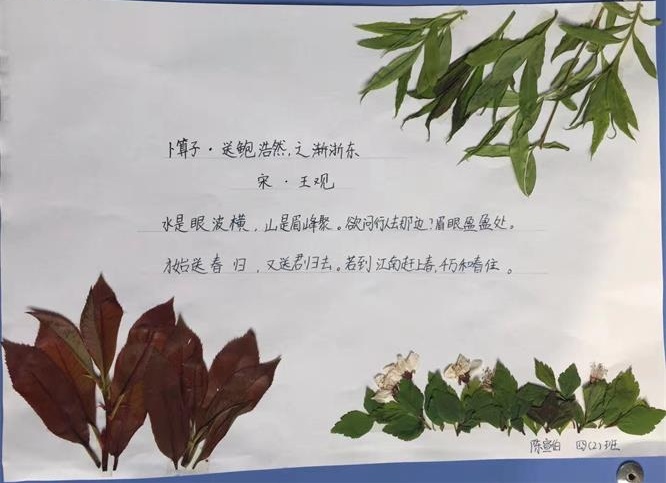 卜算子·送鲍浩然之浙东
宋·王观
水是眼波横，山是眉峰聚。欲问行人去那边？眉眼盈盈处。
才始送春归，又送君归去。若到江南赶上春，千万和春住。
四(2)班